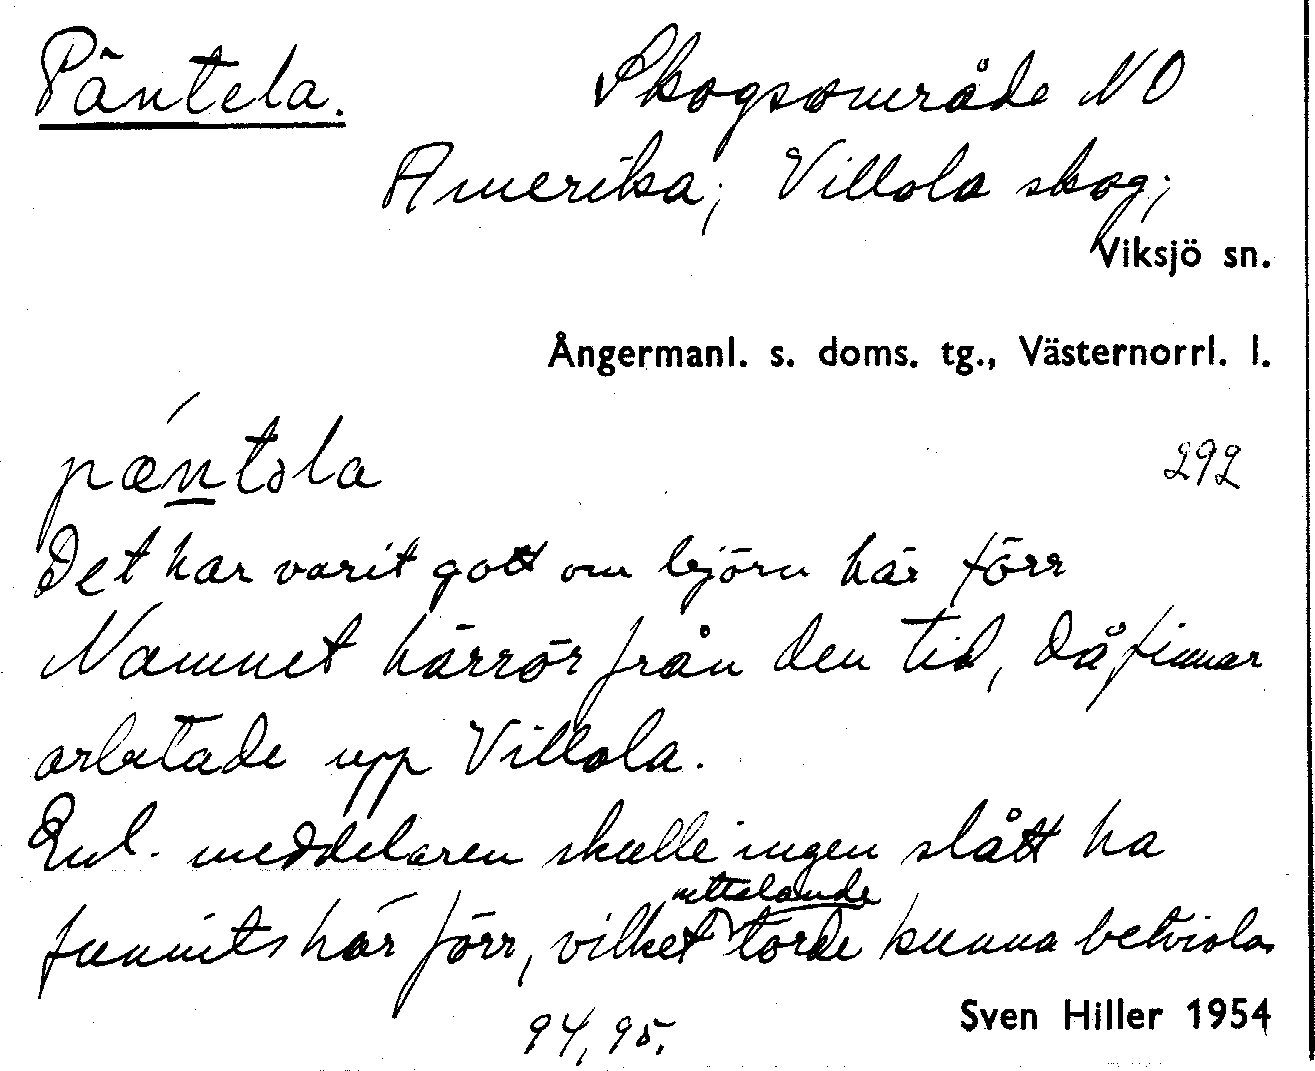 Päntela. Skogsområde NO
Amerika; Villola skog;
Viksjö sn.
Ångermanl. s. doms. tg., Västernorrl. l.
pæ´ntəla 292
Det har varit gott om björn här förr
Namnet härrör från den tid, då finnar
arbetade upp Villola.
Enl. meddelaren skulle ingen slått ha
uttalande
funnits här förr, vilket torde kunna betvivlas
94, 95.
Sven Hiller 1954